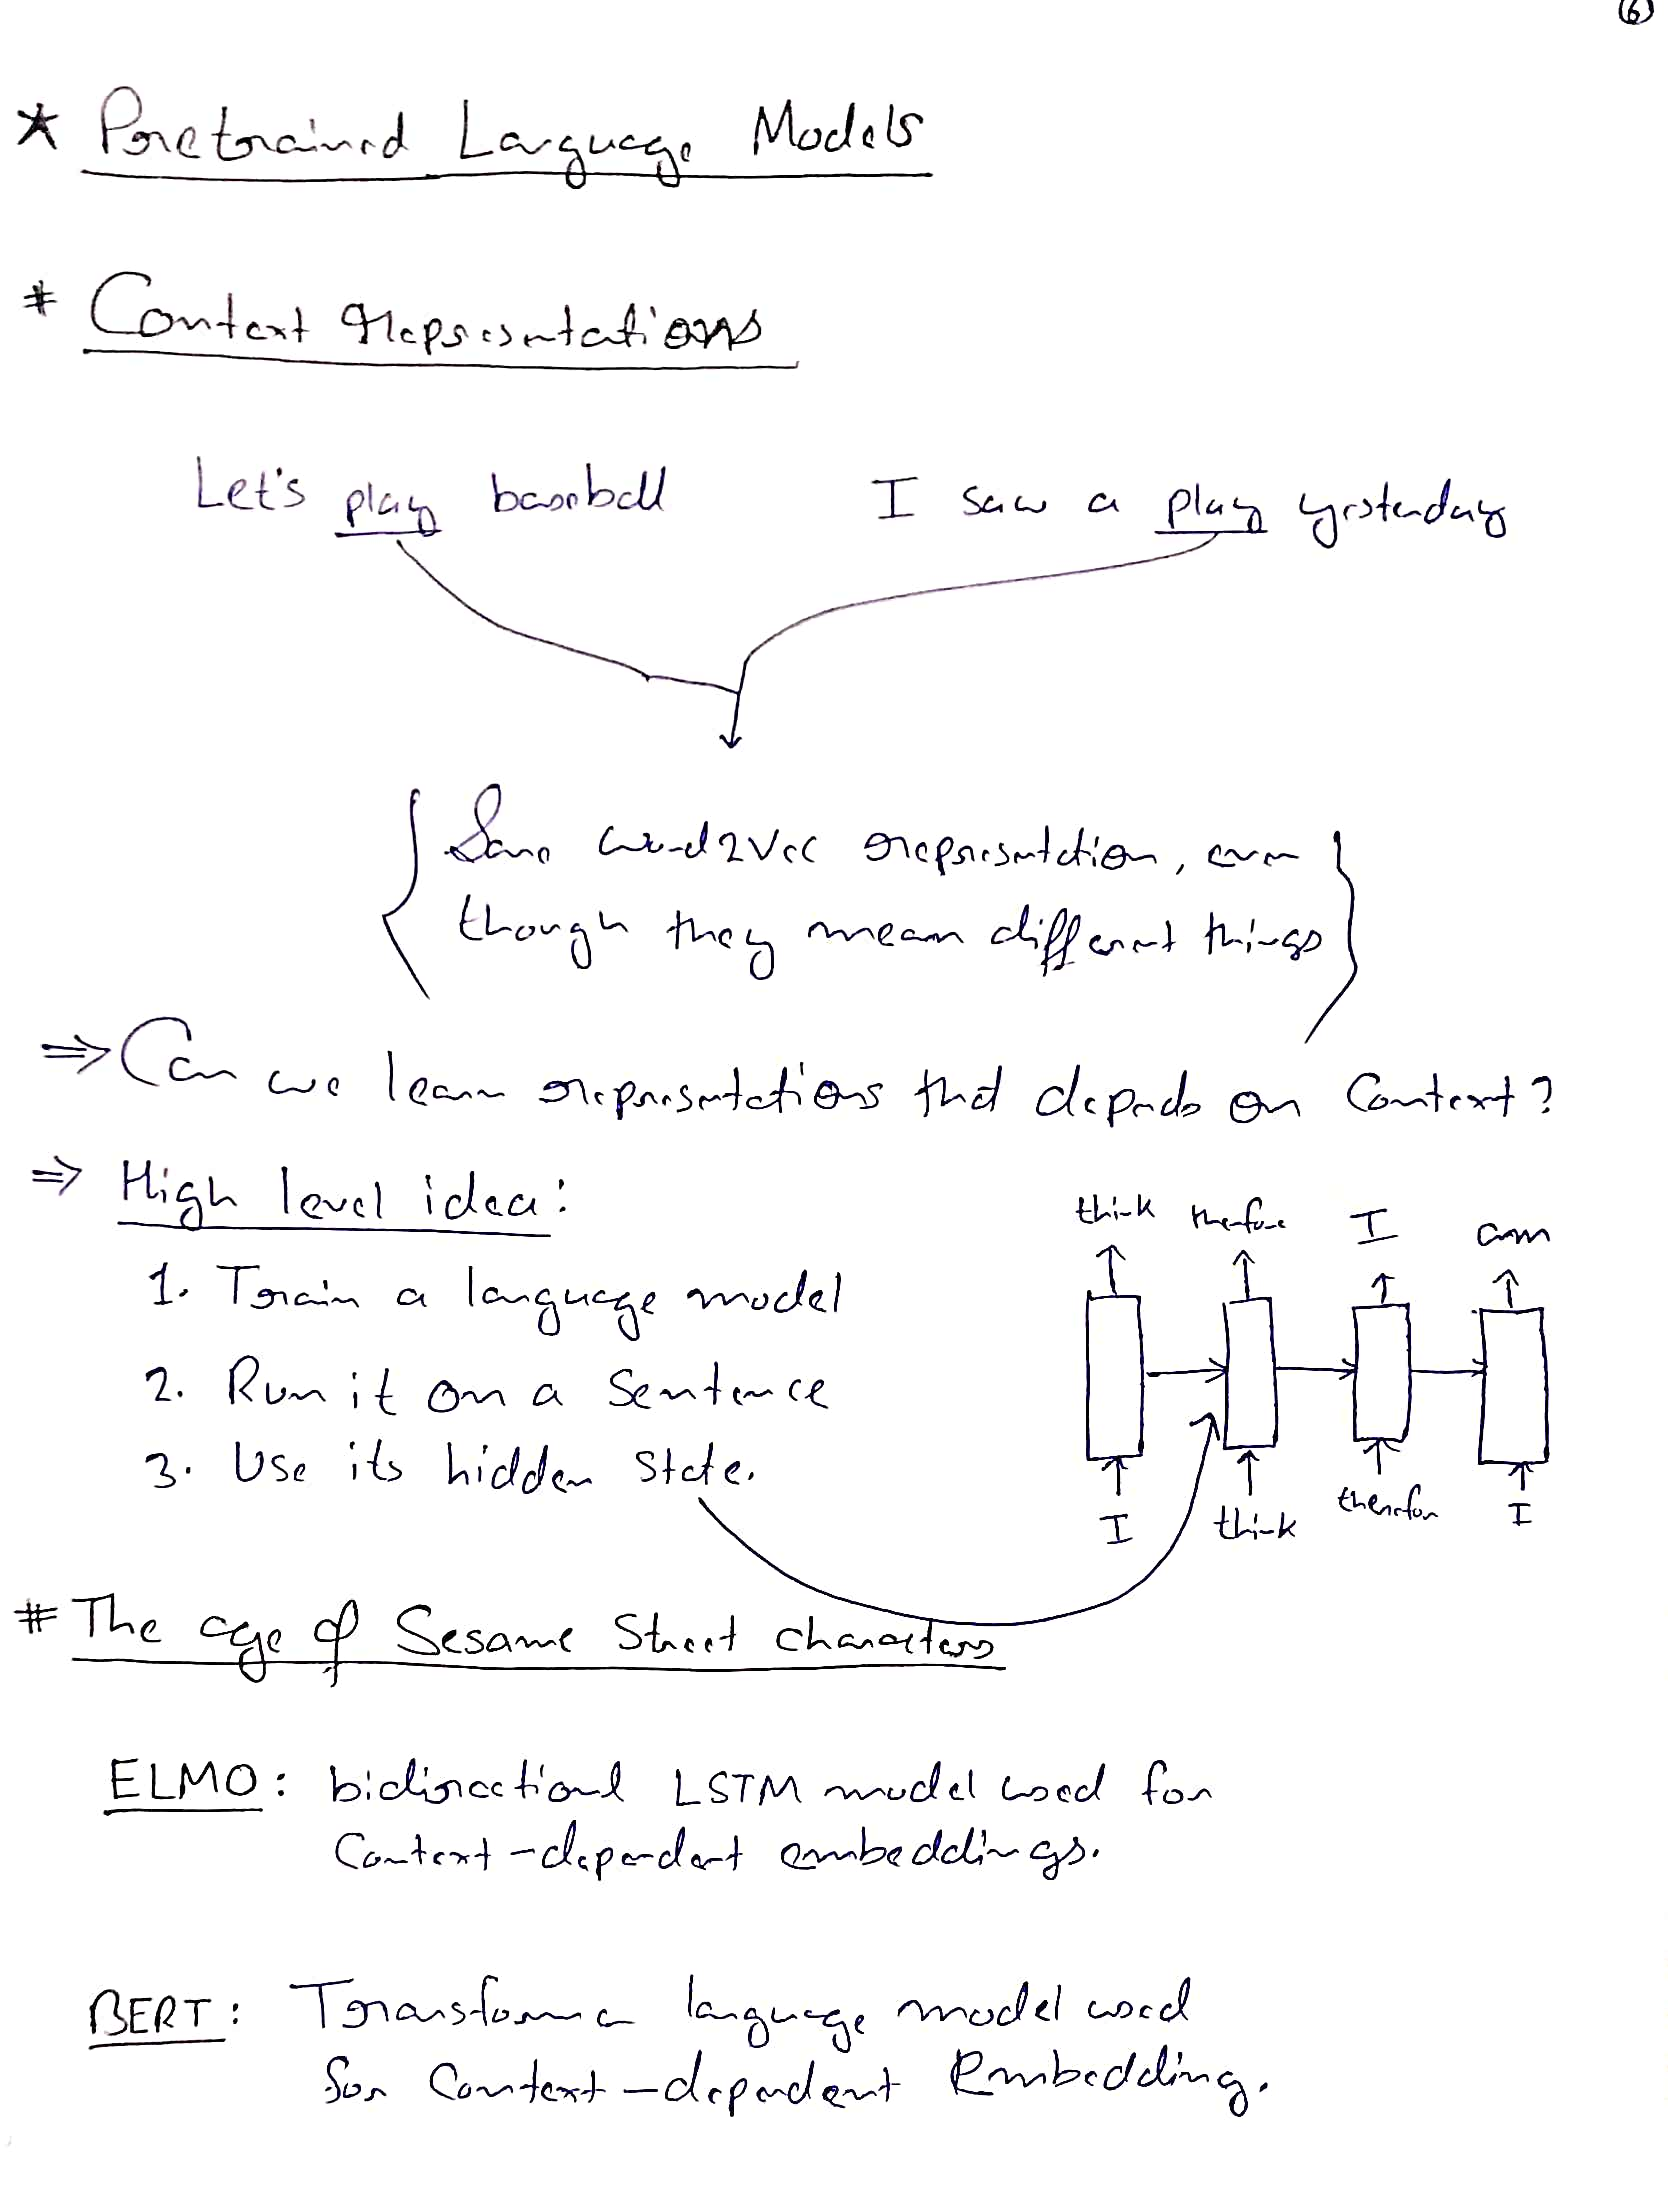 6
* Pretrained Language Models
# Context representations
Let's play baseball
I saw a play yesterday
Same word2vec representation, even
though they mean different things
⇒ Can we learn representations that depends on Context?
⇒ High level idea:
1. Train a language model
2. Run it on a Sentence
3. Use its hidden state.
think therefore I am
I think therefore I
# The age of Sesame Street characters
ELMO: bidirectional LSTM model used for
Context-dependent embeddings.
BERT: Transformer language model used
for Context-dependent Embedding.